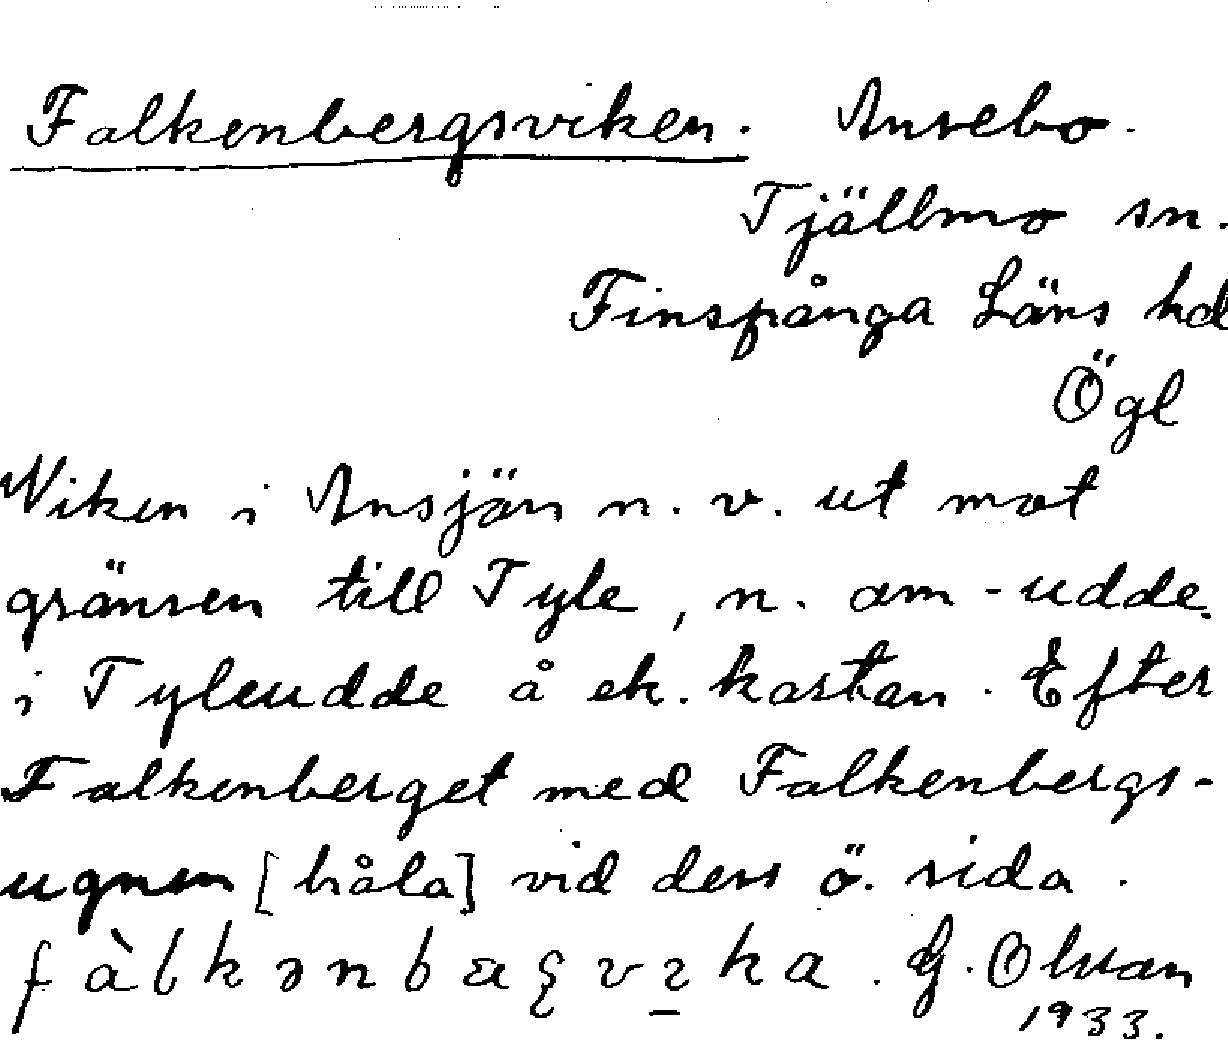 Falkenbergsviken. Ansebo.
Tjällmo sn.
Finspånga Läns hd
Ögl
Viken i Ansjön n. v. ut mot
gränsen till Tyle, n. om -udde.
i Tyleudde å ek. kartan. Efter
Falkenberget med Falkenbergs-
ugnen [håla] vid dess ö. sida.
G. Olsson
1933.